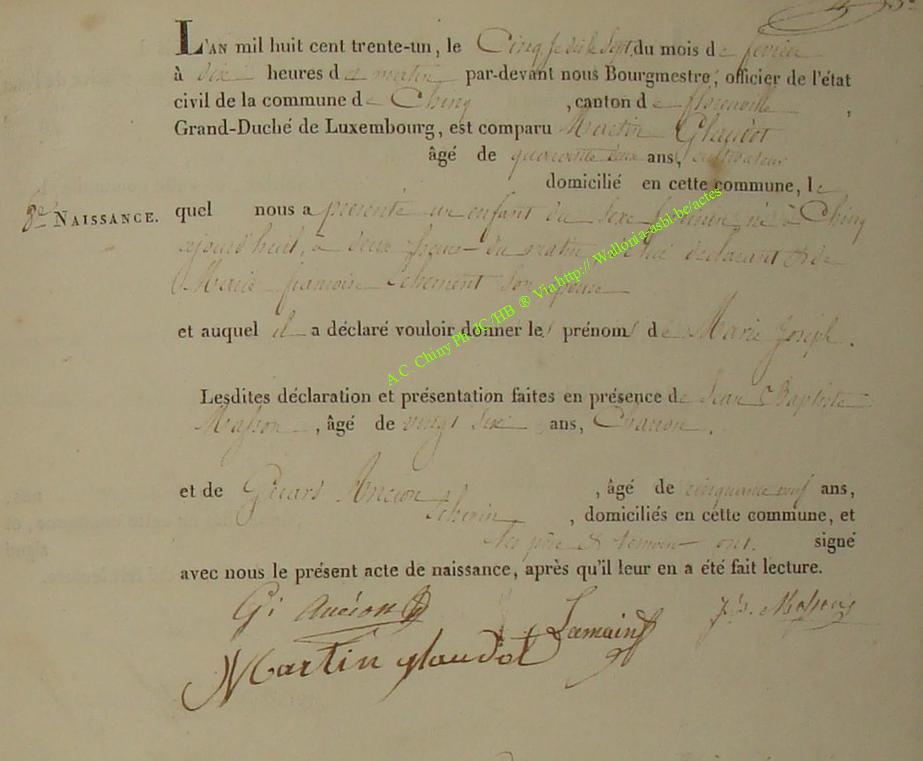 L'AN mil huit cent trente-un, le Cinq du mois de fevrier
à dix heures de matin par-devant nous Bourgmestre, officier de l'état
civil de la commune de Chiny, canton de florenville,
Grand-Duché de Luxembourg, est comparu Martin Glaudot
âgé de quarante deux ans, cultivateur
domicilié en cette commune, le
8e NAISSANCE. quel nous a présenté un enfant du sexe feminin, né à Chiny
ajourd'huit, à deux heures du matin de lui declarant & de
Marie françoise son
et auquel il a déclaré vouloir donner les prénoms de Marie Joseph.
Lesdites déclaration et présentation faites en présence de Jean Baptiste
Masson, âgé de vingt six ans, Charron.
et de Girard Ancion, âgé de cinquante neuf ans,
, domiciliés en cette commune, et
les père & temoins ont signé
avec nous le présent acte de naissance, après qu'il leur en a été fait lecture.
Gd Ancion Lamain Jb. Masson
Martin glaudot
A.C. Chiny Ph JC/HB ® Via http:// Wallonia-asbl.be/actes